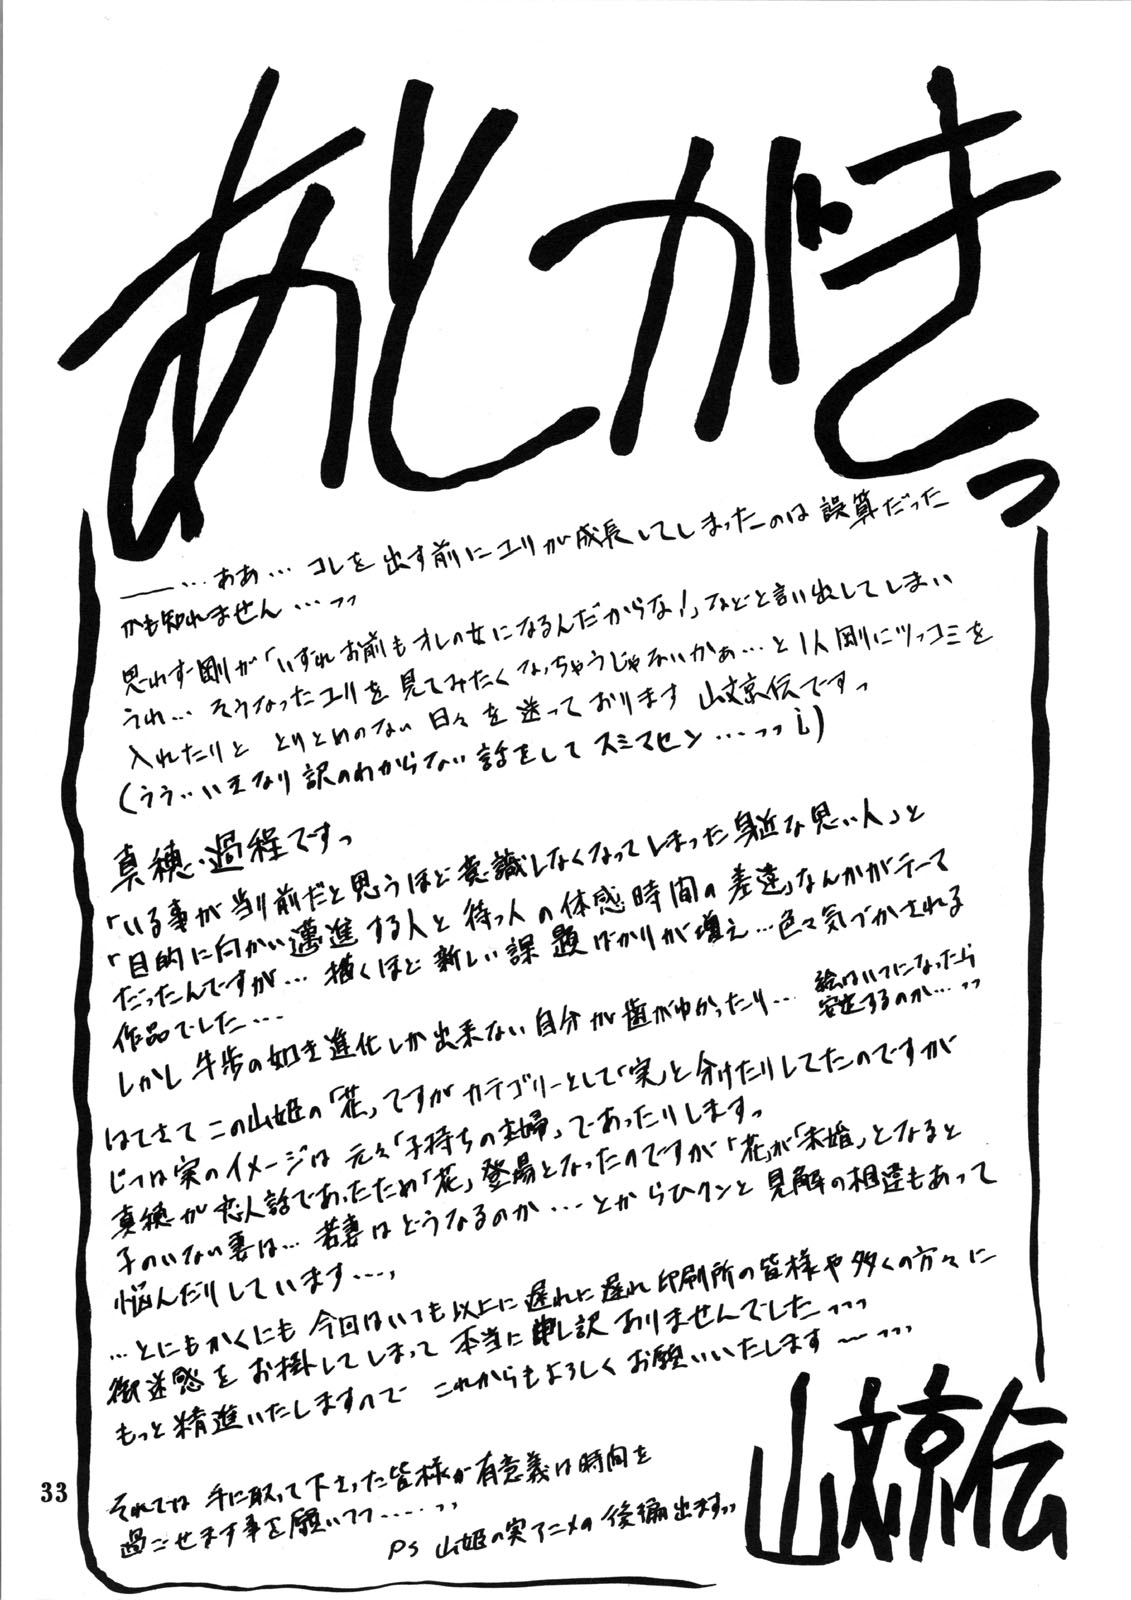 あとがきっ
―…ああ… コレを出す前にユリが成長してしまったのは誤算だった
かも知れません…ッッ
思わず剛が「いずれお前もオレの女になるんだからな!」などと言い出してしまい
うれ… そうなったユリを見てみたくなっちゃうじゃないかぁ…と1人剛にツッコミを
入れたりと とりとめのない日々を送っております 山文京伝ですっ
(うう…いきなり訳のわからない話をしてスミマセン…ッッi)
真穂・過程ですっ
「いる事が当り前だと思うほど意識しなくなってしまった身近な思い人」と
「目的に向かい邁進する人と待つ人の体感時間の差違」なんかがテーマ
だったんですが… 描くほど新しい課題ばかりが増え…色々気づかされる
作品でした…
しかし牛歩の如き進化しか出来ない自分が歯がゆかったり…
絵はいつになったら
安定するのか…ッッ
はてさてこの山姫の「花」ですがカテゴリーとして「実」と分けたりしてたのですが
じつは実のイメージは元々「子持ちの主婦」であったりしますっ
真穂が恋人話であったため「花」登場となったのですが「花」が「未婚」となると
子のいない妻は… 若妻はどうなるのか…とからひクンと見解の相違もあって
悩んだりしています…、
…とにもかくにも今回はいつも以上に遅れに遅れ印刷所の皆様や多くの方々に
御迷惑をお掛してしまって本当に申し訳ありませんでした…ッッ
もっと精進いたしますので これからもよろしくお願いいたします〜…ッッ
それでは手に取って下さった皆様が有意義な時間を
過ごせます事を願いつつ……ッッ
PS 山姫の実アニメの後編出ますッッ
山文京伝
33